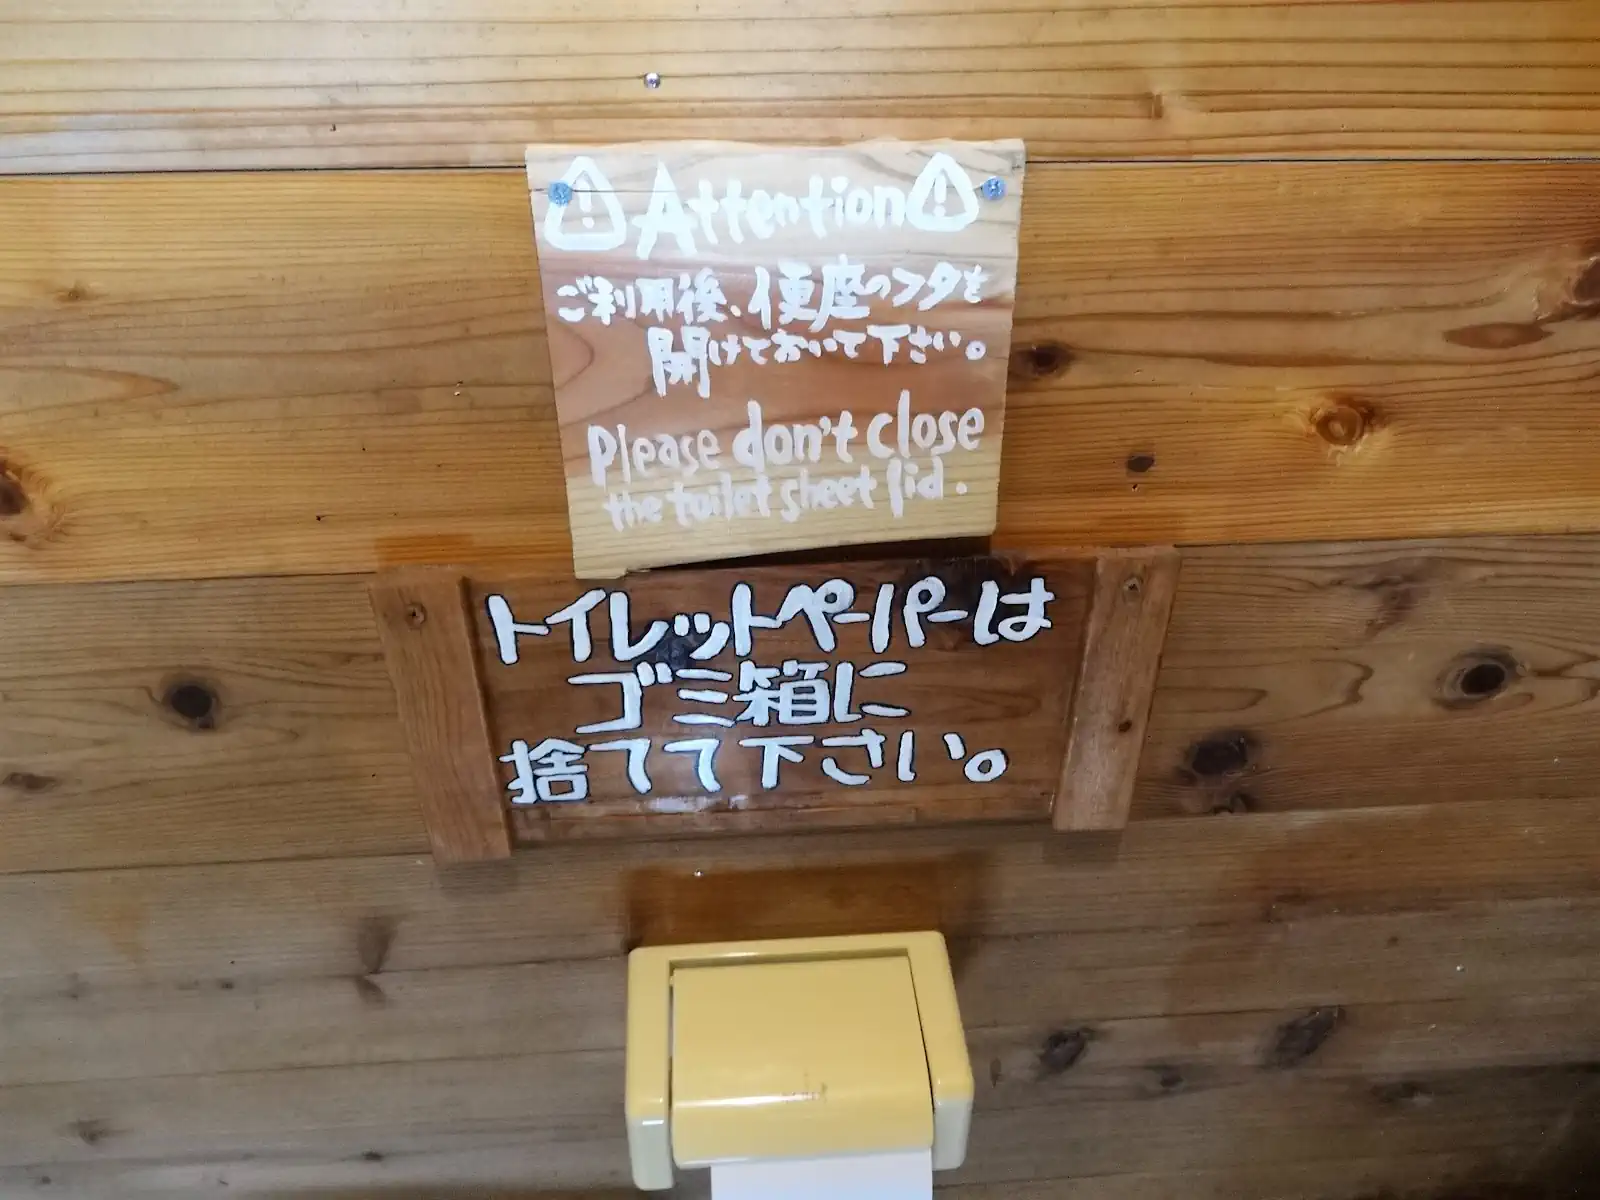 Attention
ご利用後、便座のフタを
開けておいて下さい。
Please don't close
the toilet sheet lid.
トイレットペーパーは
ゴミ箱に
捨てて下さい。